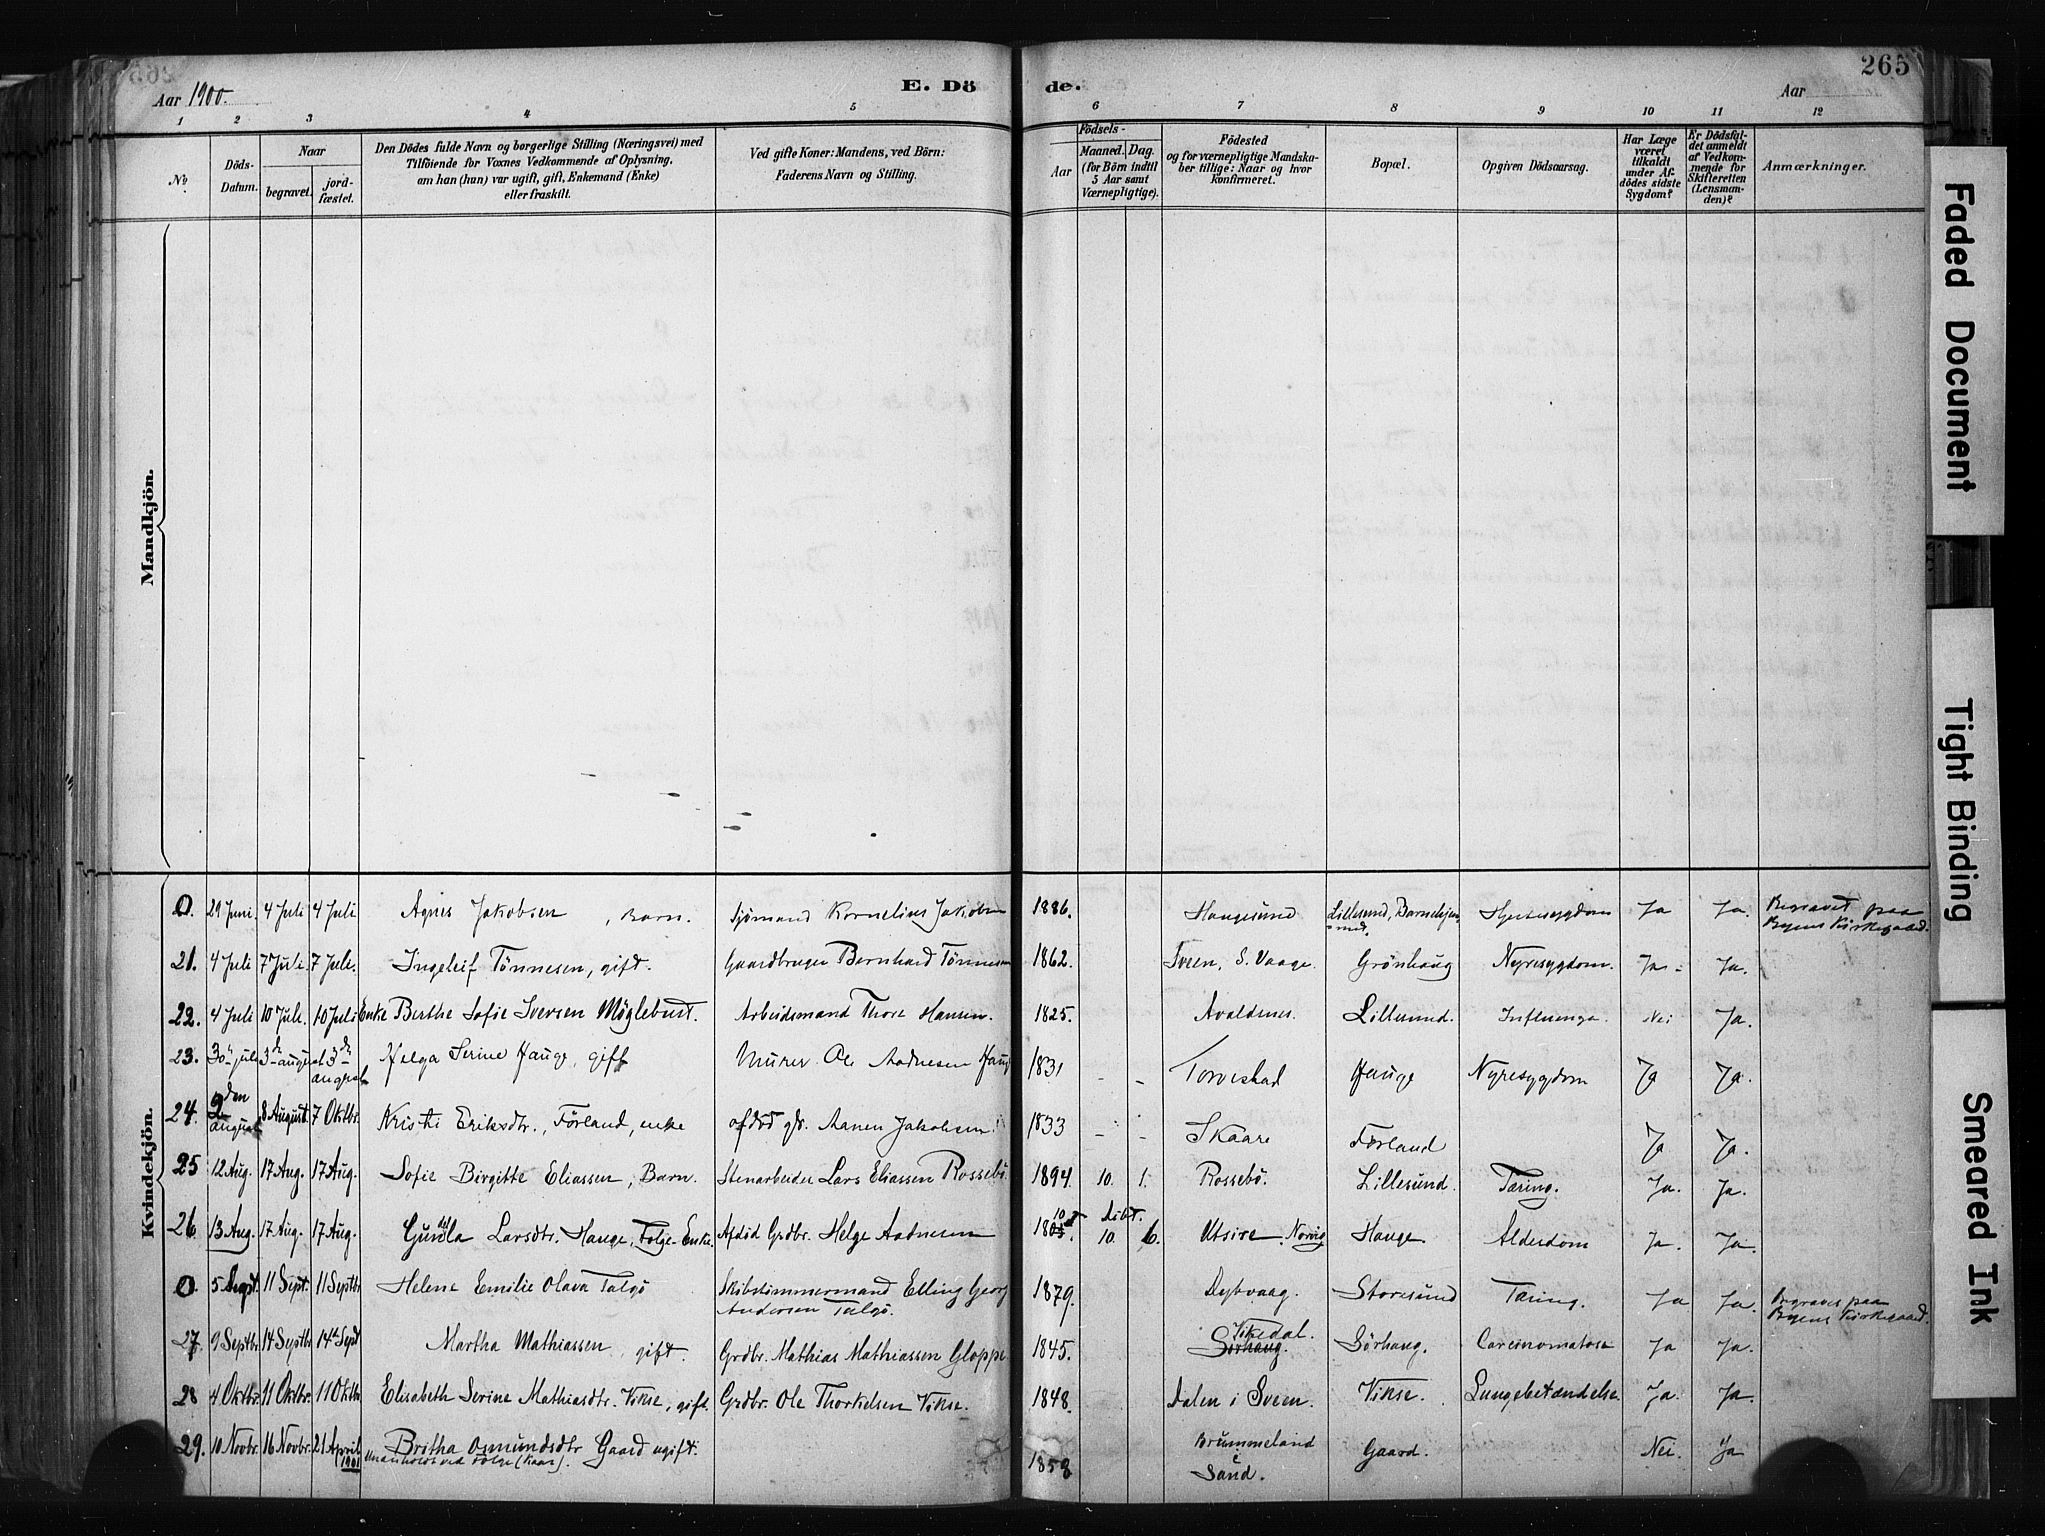 265
Aar 1900.
E. Dö de.
Aar
1 2 3 4 5 6 7 8 9 10 11 12
No
Döds-Datum.
Naar
begravet.
jord-fæstet.
Den Dödes fulde Navn og borgerlige Stilling (Næringsvei) med
Tilföiende for Voxnes Vedkommende af Oplysning,
om han (hun) var ugift, gift, Enkemand (Enke)
eller fraskilt.
Ved gifte Koner: Mandens, ved Börn:
Faderens Navn og Stilling.
Födsels-
Aar
Maaned. Dag.
(for Börn indtil
5 Aar samt
Værnepligtige).
Födested
og for værnepligtige Mandska-
ber tillige: Naar og hvor
konfirmeret.
Bopæl.
Opgiven Dödsaarsag.
Har Læge
været
tilkaldt
under Af-
dödes sidste
Sygdom?
Er Dödsfal-
det anmeldt
af Vedkom-
mende for
Skifteretten
(Lensman-
den)?
Anmærkninger.
Mandkjön.
Kvindekjön.
0. 29 Juni. 4 Juli 4 Juli Agnes Jakobsen, Barn. Sjömand Kornelius Jakobsen 1886. Haugesund Lillesund, Hjertesygdom Ja Ja. Begravet paa
Byens Kirkegaard.
21. 4 Juli 7 Juli. 7 Juli. Ingeleif Tönnesen, gift. Gaardbruger Bernhard Tönnesen 1862. Sveen, S. Vaage. Grönhaug Nyresygdom. Ja Ja.
22. 4 Juli 10 Juli. 10 Juli Enke Berthe Sofie Iversen Möglebust. Arbeidsmand Thore Hansen. 1825. Avaldsnes. Lillesund. Influenza. Nei Ja.
23. 30 juli 3de august 3de august Helga Serine Hauge, gift Murer Ole Aadnesen Hauge 1831 - - Torvestad Hauge Nyresygdom Ja Ja.
24. 2den august 8 August. 7 Oktbr. Kristi Eriksdtr., Förland, enke afdöd gbr. Aanen Jakobsen 1833 - - Skaare Förland Ja Ja.
25 12 Aug. 17 Aug. 17 Aug. Sofie Birgitte Eliassen, Barn. Stenarbeider Lars Eliassen Rossebö. 1894. 10. 1. Rossebö. Lillesund. Tæring. Ja. Ja.
26 13 Aug. 17 Aug. 17 Aug. Larsdtr. Hauge, Folge-Enke. Afdöd Grdbr. Helge Aadnesen 10. 6. Utsire. Hauge. Alderdom Ja. Ja.
0. 5 Sept. 11 Sept. 11 Septbr. Helene Emilie Olava Talgö Skibstimmermand Elling Georg
Andersen Talgö. 1879. Dybvaag. Storesund Tæring. Ja Ja. Begraves paa
Byens Kirkegaard.
27. 9 Septbr. 14 Septbr. 14de Sept Martha Mathiassen, gift. Grdbr. Mathias Mathiassen Gloppe 1845. Vikedal.
Sörhaug. Sörhaug. Carcinomatose Ja Ja.
28 4 Oktbr. 11 Oktbr. 11 Oktbr. Elisabeth Serine Mathiasdtr. Vikse, gift. Grdbr. Ole Thorkelsen Vikse. 1848. Dalen i Sveen. Vikse. Lungebetændelse. Ja. Ja.
29. 10 Novbr. 16 Novbr. 21 April
1901 Britha Osmundsdtr Gaard ugift. 1858 Brummeland
i
Sand. Gaard. Nei. Ja
Faded Document
Tight Binding
Smeared Ink